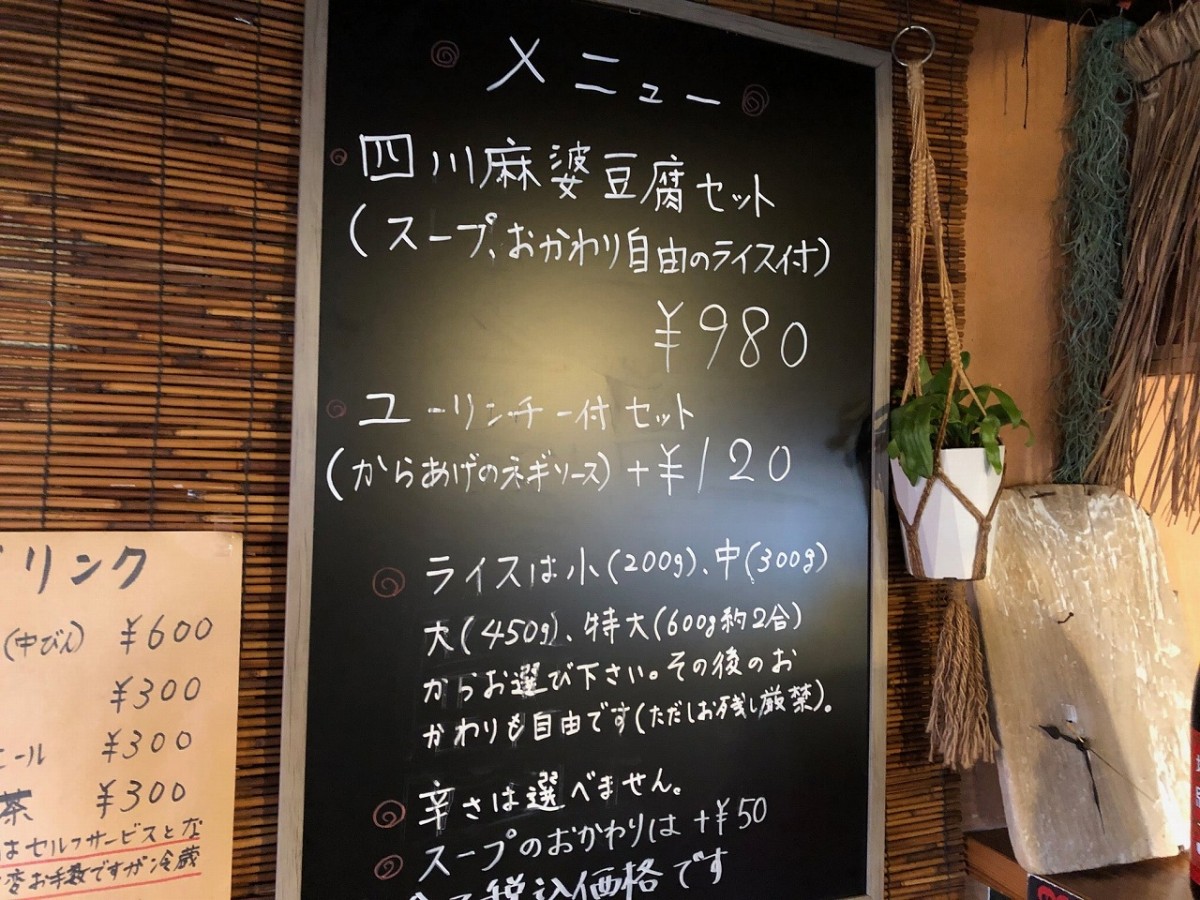 メニュー
四川麻婆豆腐セット
(スープ、おかわり自由のライス付)
¥980
ユーリンチー付セット
(からあげのネギソース)+¥120
ライスは小(200g)、中(300g)
大(450g)、特大(600g約2合)
からお選び下さい。その後のお
かわりも自由です(ただしお残し厳禁)。
辛さは選べません。
スープのおかわりは+¥50
税込価格です
ドリンク
(中びん) ¥600
¥300
ニール ¥300
茶 ¥300
はセルフサービスとな
変お手数ですが冷蔵